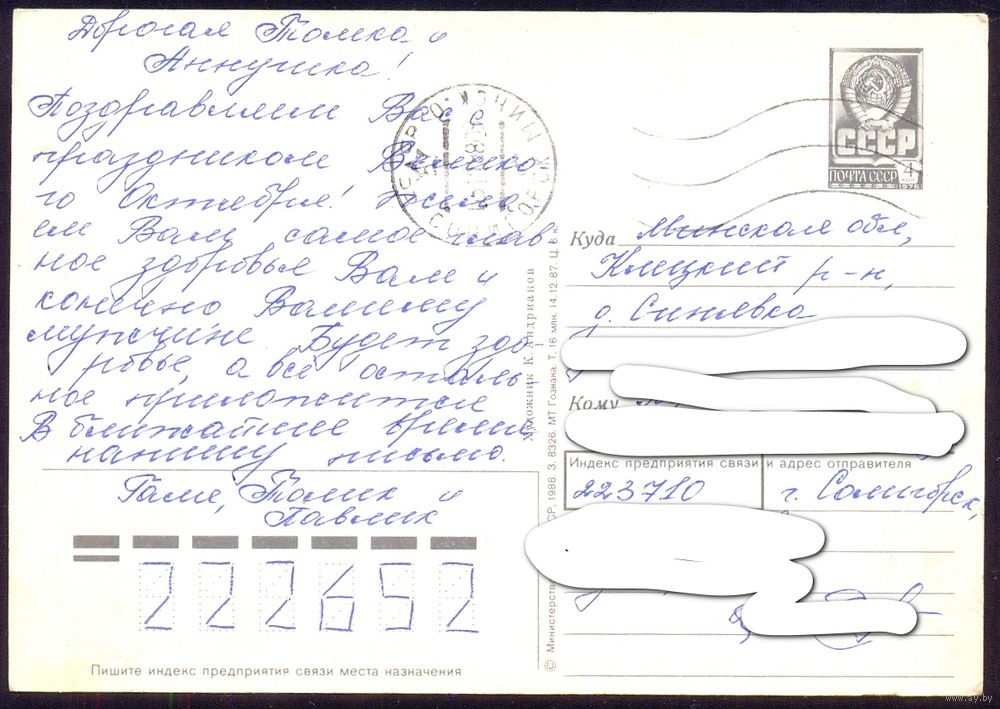 Дорогая Томка и
Аннушка!
Поздравляем Вас с
праздником Велико-
го Октября! Жела-
ем Вам самое глав-
ное здоровья Вам и
конечно Вашему
мужчине. Будет здо-
ровье, а всё осталь-
ное приложится
В ближайшее время
напишу письмо.
Галя, Толик и
Павлик
222652
Пишите индекс предприятия связи места назначения
СССР
ПОЧТА СССР
4
КОП
1976
Куда Минская обл,
Клецкий р-н,
д. Синявка
Кому
Индекс предприятия связи и адрес отправителя
223710 г. Солигорск,
Художник К. Андрианов
© Министерство 1988. З. 8326. МТ Гознака. Т. 16 млн. 14.12.87. Ц.
СОЛИГОРСК МИНСК
www.ay.by